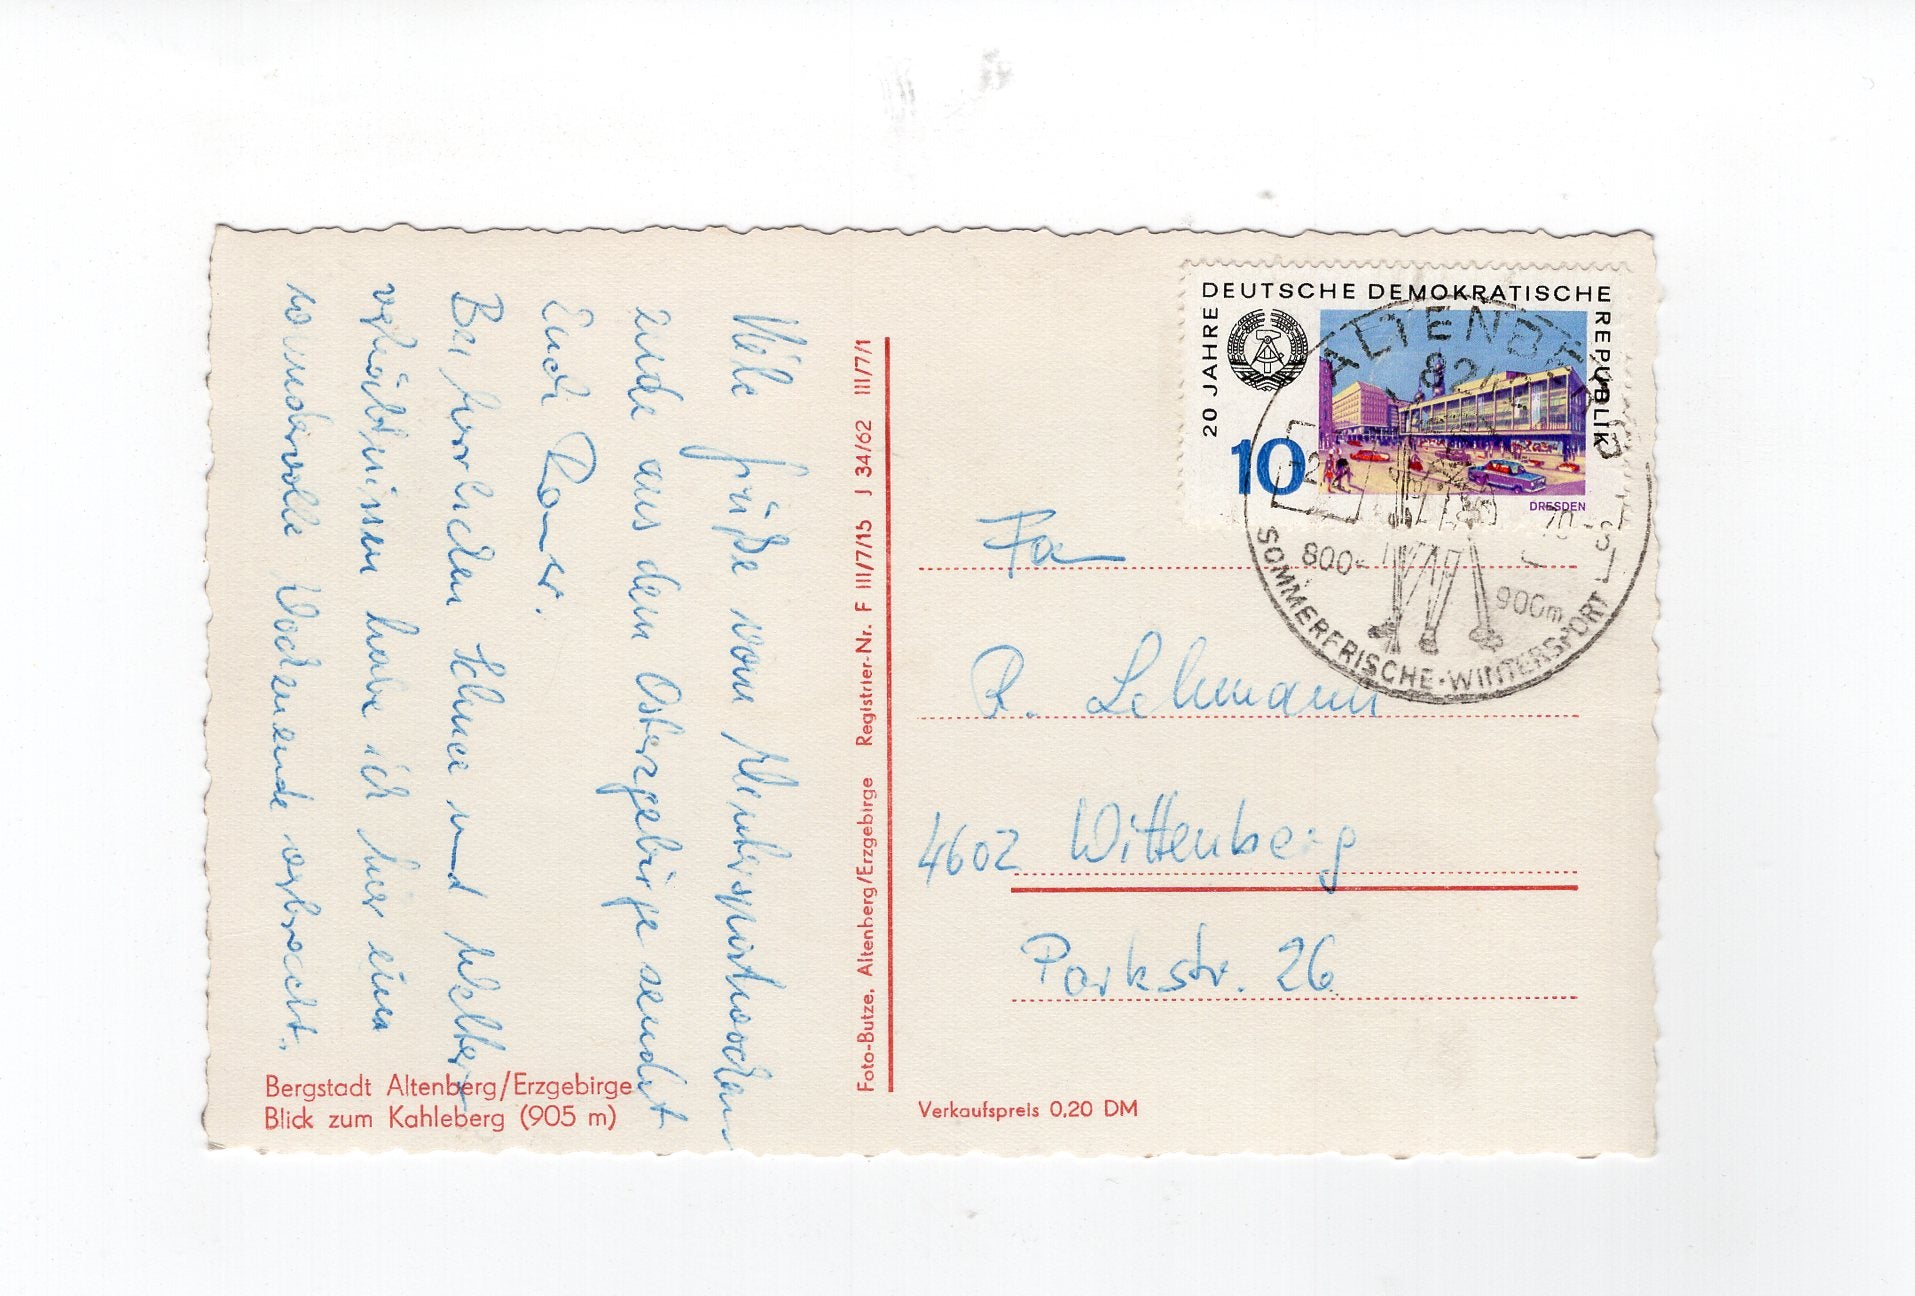 Viele Grüße vom Wintersportwochen-
ende aus dem Osterzgebirge sendet
Euch
Bei herrlichen Schnee und Wetter-
verhältnissen habe ich hier ein
wundervolle Wochenende verbracht.
Bergstadt Altenberg/Erzgebirge
Blick zum Kahleberg (905 m)
Foto-Butze, Altenberg/Erzgebirge Registrier-Nr. F III/7/15 J 34/62 III/7/1
DEUTSCHE DEMOKRATISCHE
REPUBLIK
20 JAHRE
10
DRESDEN
ALTENBERG
SOMMERFRISCHE·WINTERSPORT
800-
900m
Fa
R. Lehmann
4602 Wittenberg
Parkstr. 26
Verkaufspreis 0,20 DM